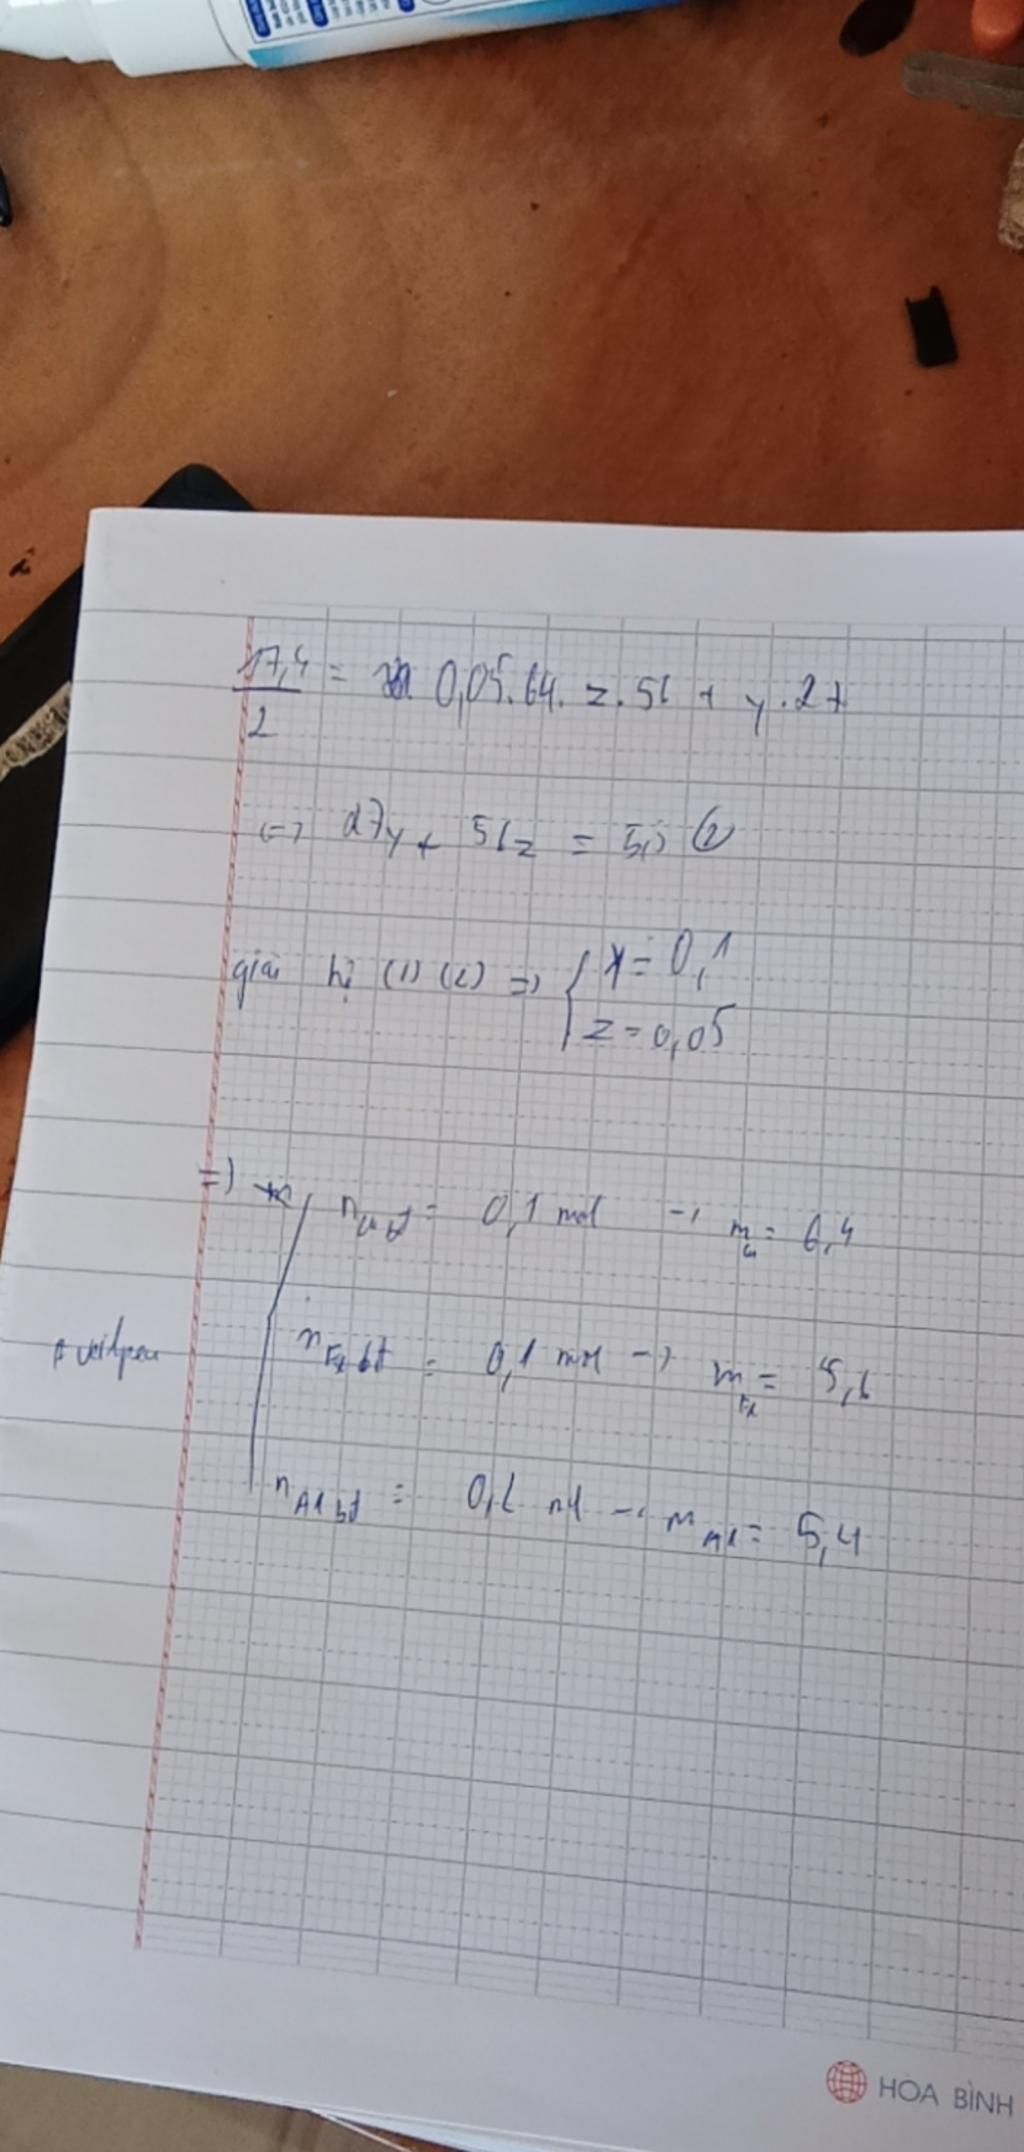 17,4 / 2 = 0,05.64. z.56 + y.27
<=> 27y + 56z = 5,5 (2)
giải hệ (1) (2) => { y = 0,1
z = 0,05
=> n Cu bđ = 0,1 mol -> m Cu = 6,4
n Fe bđ = 0,1 mol -> m Fe = 5,6
n Al bđ = 0,2 mol -> m Al = 5,4
HÒA BÌNH